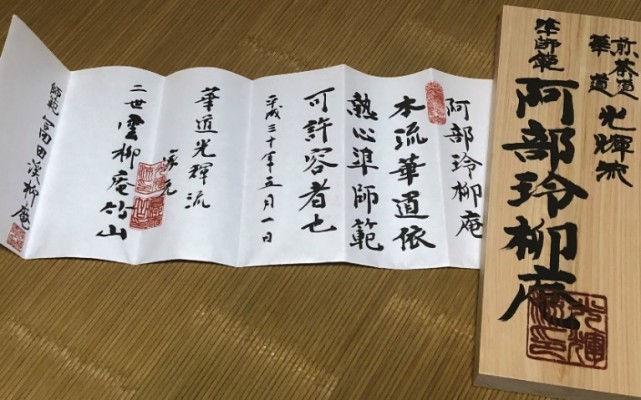 煎茶道
華道
光輝流
準師範
阿部玲柳庵
阿部玲柳庵
本流華道依
熱心準師範
可許容者也
平成三十年五月一日
華道光輝流
家元
二世雲柳庵竹山
師範 富田渓柳庵